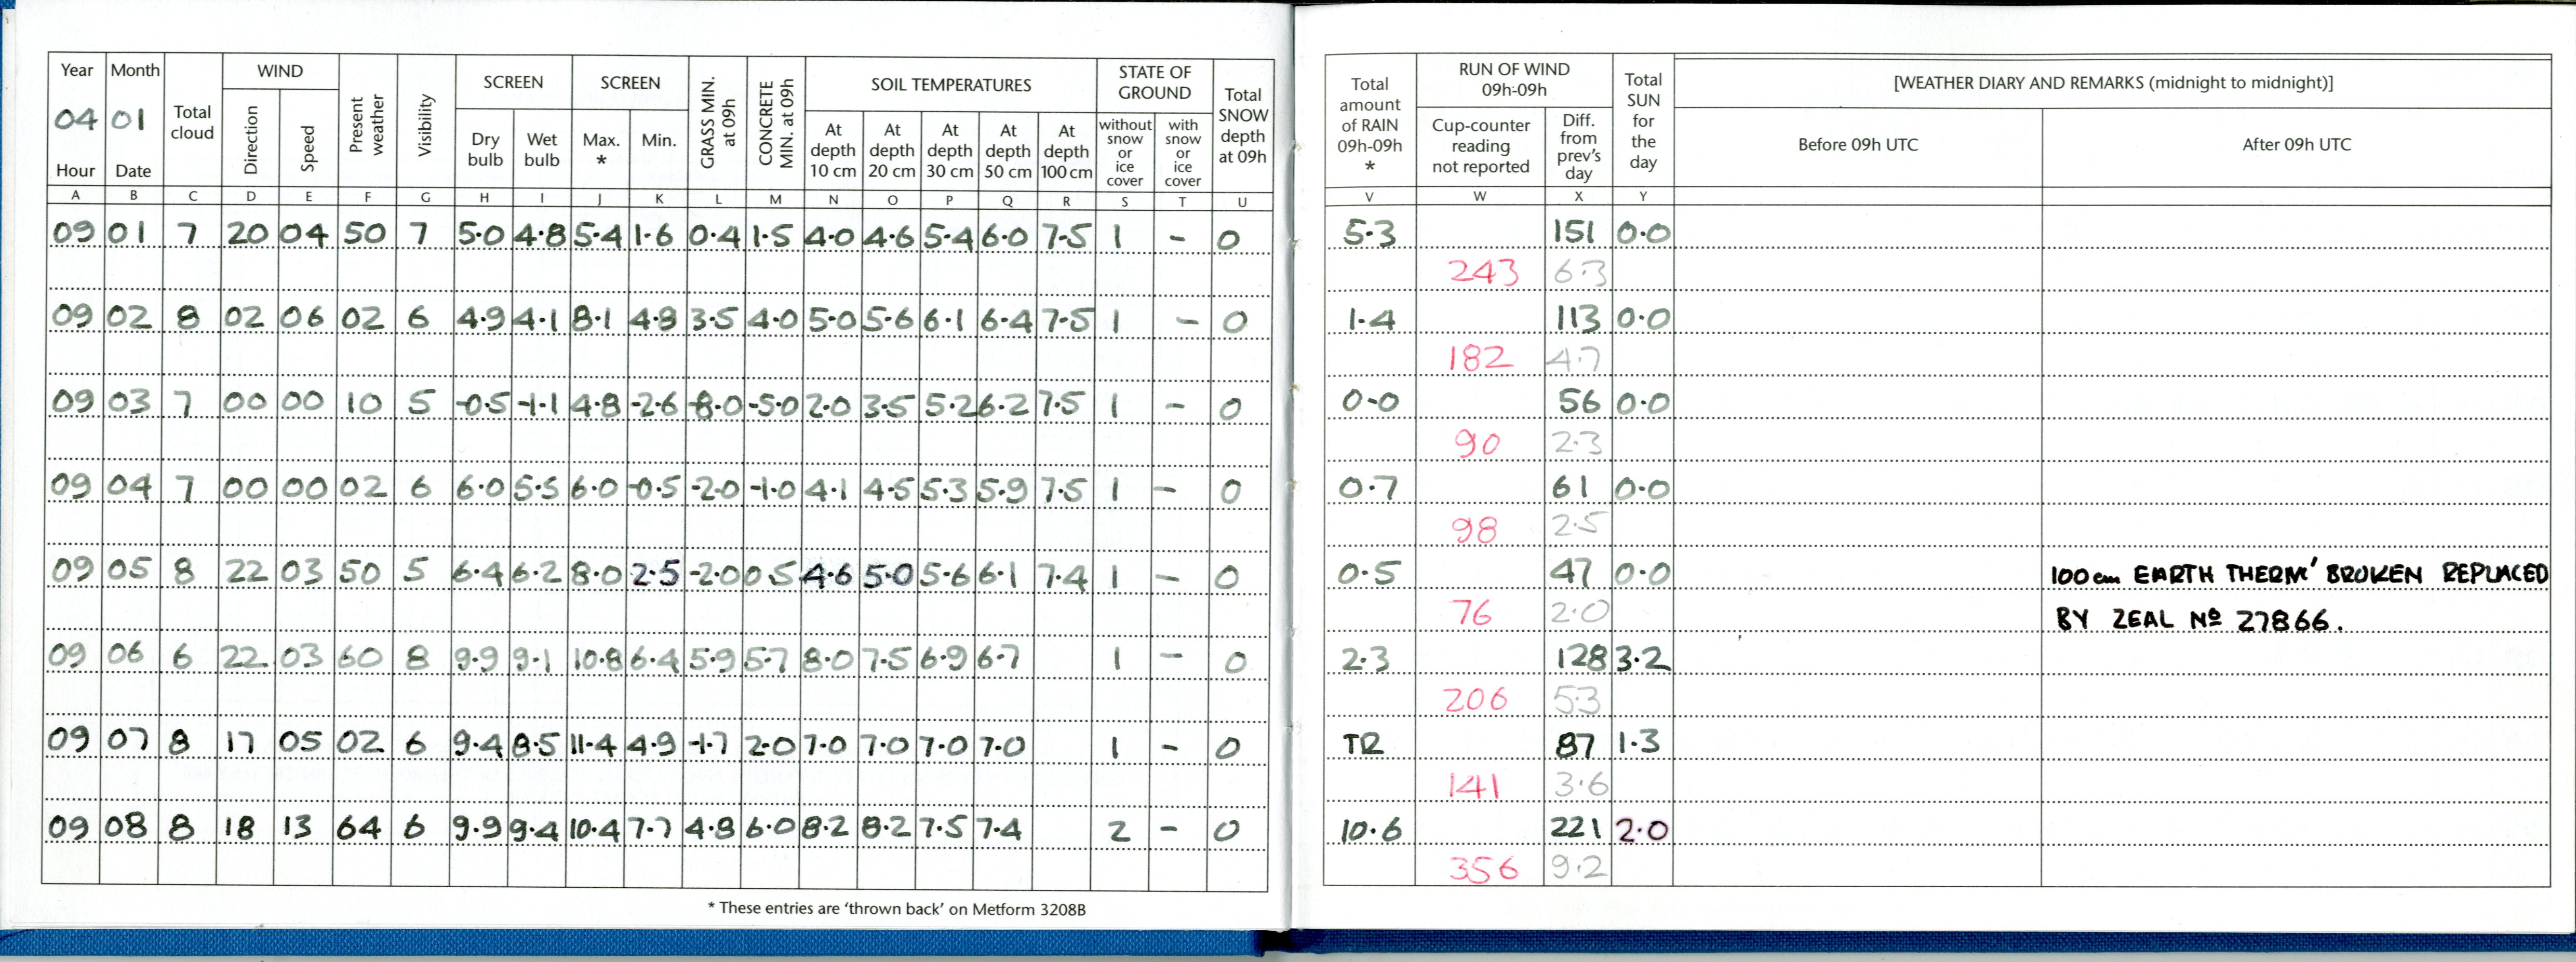 Year Month WIND SCREEN SCREEN SOIL TEMPERATURES STATE OF GROUND Total SNOW depth at 09h
04 01 Total cloud Direction Speed Present weather Visibility Dry bulb Wet bulb Max. * Min. GRASS MIN. at 09h CONCRETE MIN. at 09h At depth 10 cm At depth 20 cm At depth 30 cm At depth 50 cm At depth 100 cm without snow or ice cover with snow or ice cover
Hour Date
A B C D E F G H I J K L M N O P Q R S T U
09 01 7 20 04 50 7 5.0 4.8 5.4 1.6 0.4 1.5 4.0 4.6 5.4 6.0 7.5 1 - 0
09 02 8 02 06 02 6 4.9 4.1 8.1 4.8 3.5 4.0 5.0 5.6 6.1 6.4 7.5 1 - 0
09 03 7 00 00 10 5 -0.5 -1.1 4.8 -2.6 -8.0 -5.0 2.0 3.5 5.2 6.2 7.5 1 - 0
09 04 7 00 00 02 6 6.0 5.5 6.0 -0.5 -2.0 -1.0 4.1 4.5 5.3 5.9 7.5 1 - 0
09 05 8 22 03 50 5 6.4 6.2 8.0 2.5 -2.0 0.5 4.6 5.0 5.6 6.1 7.4 1 - 0
09 06 6 22 03 60 8 9.9 9.1 10.8 6.4 5.9 5.7 8.0 7.5 6.9 6.7 1 - 0
09 07 8 17 05 02 6 9.4 8.5 11.4 4.9 -1.7 2.0 7.0 7.0 7.0 7.0 1 - 0
09 08 8 18 13 64 6 9.9 9.4 10.4 7.7 4.8 6.0 8.2 8.2 7.5 7.4 2 - 0
* These entries are ‘thrown back’ on Metform 3208B
Total amount of RAIN 09h-09h * RUN OF WIND 09h-09h Total SUN for the day [WEATHER DIARY AND REMARKS (midnight to midnight)]
Cup-counter reading not reported Diff. from prev's day Before 09h UTC After 09h UTC
V W X Y
5.3 151 0.0
243 6.3
1.4 113 0.0
182 4.7
0.0 56 0.0
90 2.3
0.7 61 0.0
98 2.5
0.5 47 0.0 100cm EARTH THERM' BROKEN REPLACED
76 2.0 BY ZEAL Nº 27866.
2.3 128 3.2
206 5.3
TR 87 1.3
141 3.6
10.6 221 2.0
356 9.2